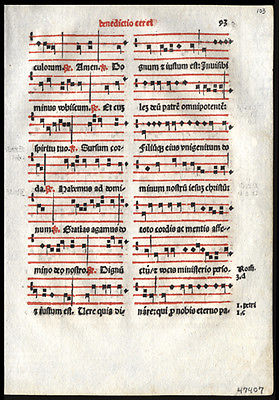 103
benedictio cerei
93
culorum. ℟. Amen. ℟. Do
minus vobiscum. ℟. Et cuʒ
spiritu tuo. ℟. Sursum cor
da. ℟. Habemus ad domi
num. ℟. Gratias agamus do
mino deo nostro. ℟. Dignū
& iustum est. Uere quia di
gnum & iustum est: Inuisibi
leʒ deū patrē omnipotentē
Filiūqʒ eius vnigenitum do
minum nostrū iesus christuʒ
toto cordis ac mentis affe
ctu: & vocis ministerio perso
nare: qui pro nobis eterno pa
Rom.
1. petri
47407